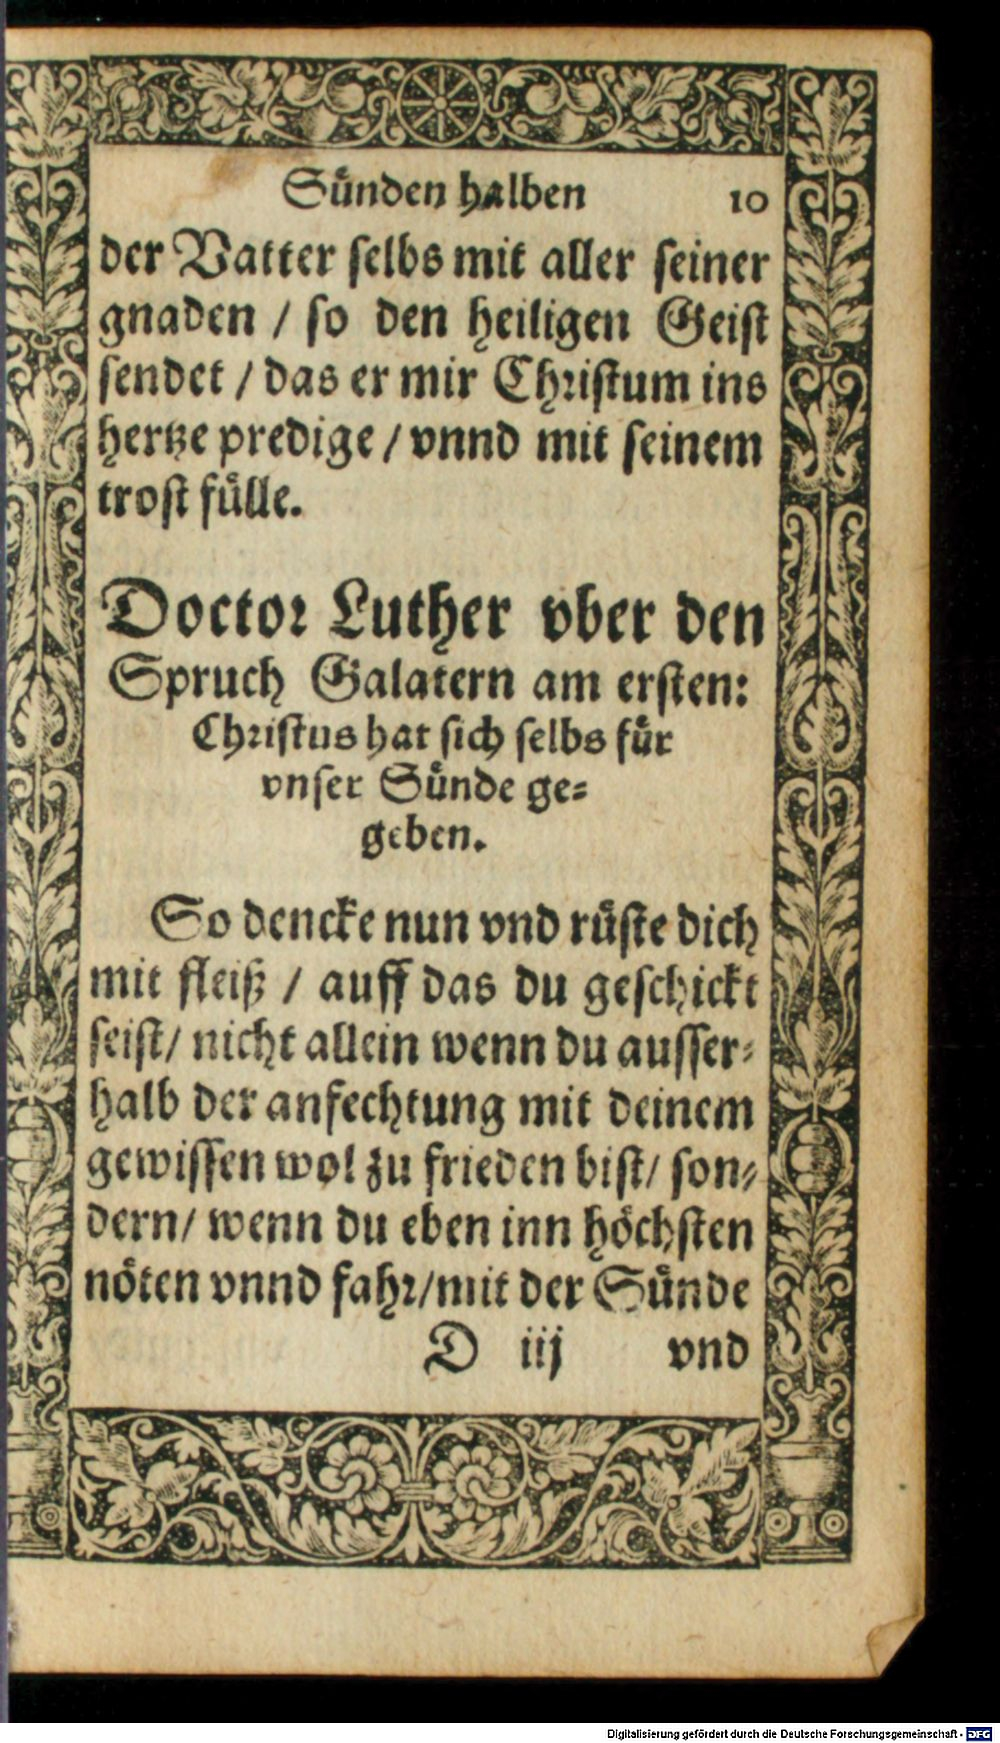 Sünden halben 10
der Vatter selbs mit aller seiner
gnaden / so den heiligen Geist
sendet / das er mir Christum ins
hertze predige / vnnd mit seinem
trost fülle.
Doctor Luther vber den
Spruch Galatern am ersten:
Christus hat sich selbs für
vnser Sünde ge=
geben.
So dencke nun vnd rüste dich
mit fleiß / auff das du geschickt
seist / nicht allein wenn du ausser=
halb der anfechtung mit deinem
gewissen wol zu frieden bist / son=
dern / wenn du eben inn höchsten
nöten vnnd fahr / mit der Sünde
D iij vnd
Digitalisierung gefördert durch die Deutsche Forschungsgemeinschaft - DFG